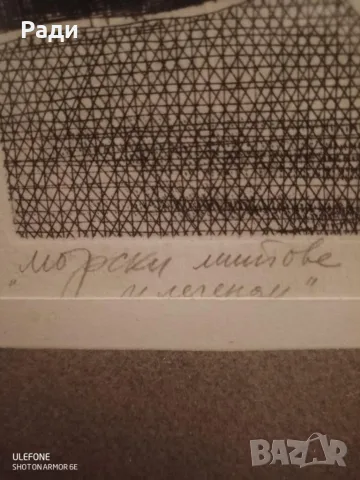 Ради
"морски митове
и легенди"
ULEFONE
SHOT ON ARMOR 6E
BAZAR